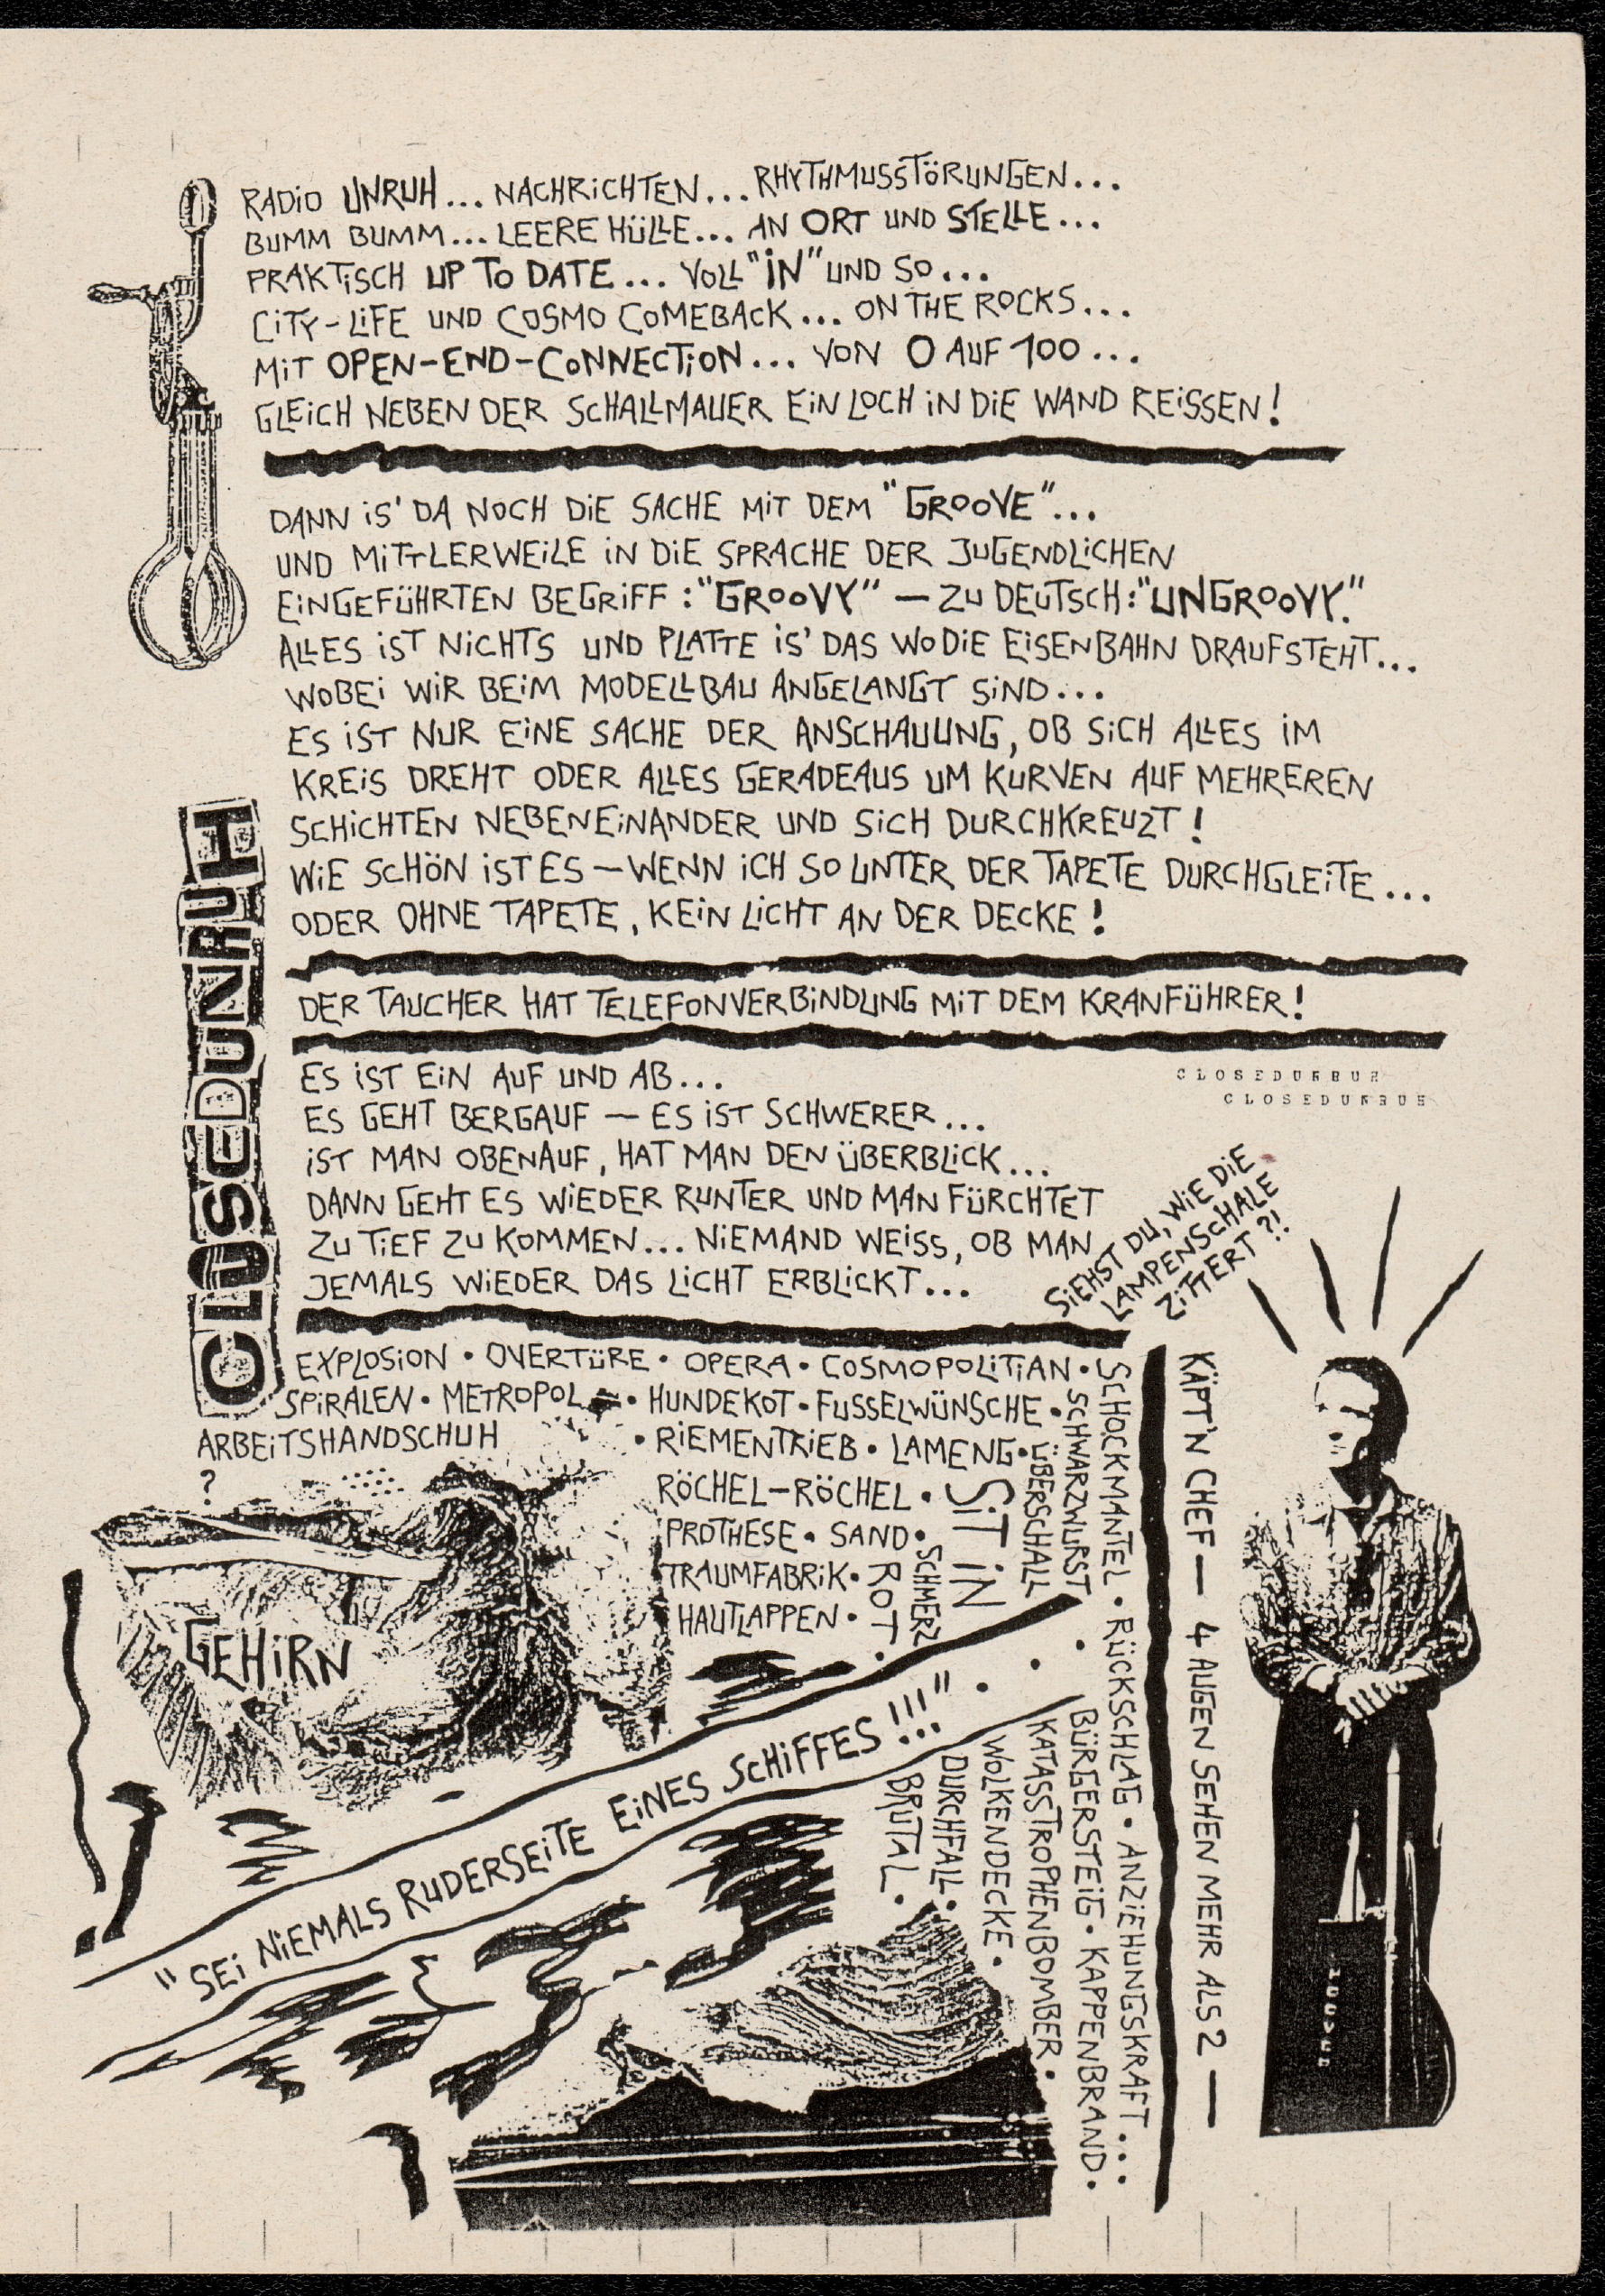 RADiO UNRUH... NACHRiCHTEN... RHYTHMUSSTÖRUNGEN...
BUMM BUMM... LEERE HÜLLE... AN ORT UND STELLE...
PRAKTiSCH UP TO DATE... VOLL "iN" UND SO...
CiTY-LiFE UND COSMO COMEBACK... ON THE ROCKS...
MiT OPEN-END-CONNECTiON... VON 0 AUF 100...
GLEiCH NEBEN DER SCHALLMAUER EiN LOCH iN DiE WAND REiSSEN!
DANN iS' DA NOCH DiE SACHE MiT DEM "GROOVE"...
UND MiTTLERWEiLE iN DiE SPRACHE DER JUGENDLiCHEN
EiNGEFÜHRTEN BEGRiFF: "GROOVY" — ZU DEUTSCH: "UNGROOVY."
ALLES iST NiCHTS UND PLATTE iS' DAS WO DiE EiSENBAHN DRAUFSTEHT...
WOBEi WiR BEiM MODELLBAU ANGELANGT SiND...
ES iST NUR EiNE SACHE DER ANSCHAUUNG, OB SiCH ALLES iM
KREiS DREHT ODER ALLES GERADEAUS UM KURVEN AUF MEHREREN
SCHiCHTEN NEBENEiNANDER UND SiCH DURCHKREUZT!
WiE SCHÖN iST ES — WENN iCH SO UNTER DER TAPETE DURCHGLEiTE...
ODER OHNE TAPETE, KEiN LiCHT AN DER DECKE!
CLOSEDUNRUH
DER TAUCHER HAT TELEFONVERBiNDUNG MiT DEM KRANFÜHRER!
ES iST EiN AUF UND AB...
ES GEHT BERGAUF — ES iST SCHWERER...
iST MAN OBENAUF, HAT MAN DEN ÜBERBLiCK...
DANN GEHT ES WiEDER RUNTER UND MAN FÜRCHTET
ZU TiEF ZU KOMMEN... NiEMAND WEiSS, OB MAN
JEMALS WiEDER DAS LiCHT ERBLiCKT...
CLOSEDUNRUH
CLOSEDUNRUH
SiEHST DU, WiE DiE
LAMPENSCHALE
ZiTTERT?!
EXPLOSiON • OVERTÜRE • OPERA • COSMOPOLiTiAN •
SPiRALEN • METROPOL • HUNDEKOT • FUSSELWÜNSCHE •
ARBEiTSHANDSCHUH
?
• RiEMENTRiEB • LAMENG •
RÖCHEL-RÖCHEL •
PROTHESE • SAND •
TRAUMFABRiK •
HAUTLAPPEN •
ROT •
SCHMERZ
SiT iN
ÜBERSCHALL
SCHWARZWURST
SCHOCKMANTEL • RÜCKSCHLAG • ANZiEHUNGSKRAFT...
BÜRGERSTEiG • KAPPENBRAND •
KATASSTROPHENBOMBER •
WOLKENDECKE •
DURCHFALL •
BRUTAL •
GEHiRN
"SEi NiEMALS RUDERSEiTE EiNES SCHiFFES!!!"
KÄPT'N CHEF — 4 AUGEN SEHEN MEHR ALS 2 —
HOOVER